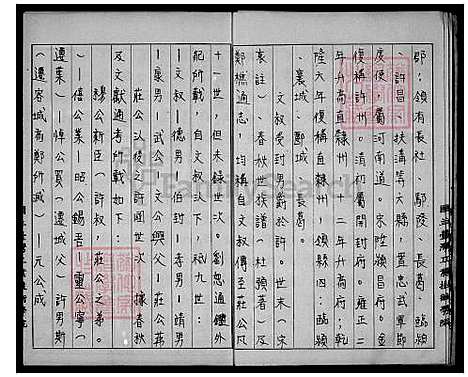 郡,領有長社、鄢陵、長葛、臨潁
、許昌、扶溝等六縣,置忠武軍節
度使,屬河南道。宋陞潁昌府。金
復稱許州。清初屬開封府。雍正二
年升爲直隸州,十二年升爲府;乾
隆六年復稱直隸州,領縣四:臨潁
、襄城、郾城、長葛。
文叔受封男爵於許,世次,
表註)、春秋世族譜(杜預著)及
鄭樵通志,均稱自文叔傳至莊公凡
十一世,但未錄世次。劉恕通鑑外
紀所載,自文叔以下,祇九世:
─文叔─德男─伯封─孝男─靖男
─康男─武公─文公興父─莊公茀
莊公以後之許國世次,據春秋
及文獻通考所載如下:
穆公新臣(許叔,莊公之弟。
)─僖公業─昭公錫吾─靈公甯(
遷葉)─悼公買(遷城父)許男斯
(遷容城爲鄭所滅)─元公成
FamilySearch